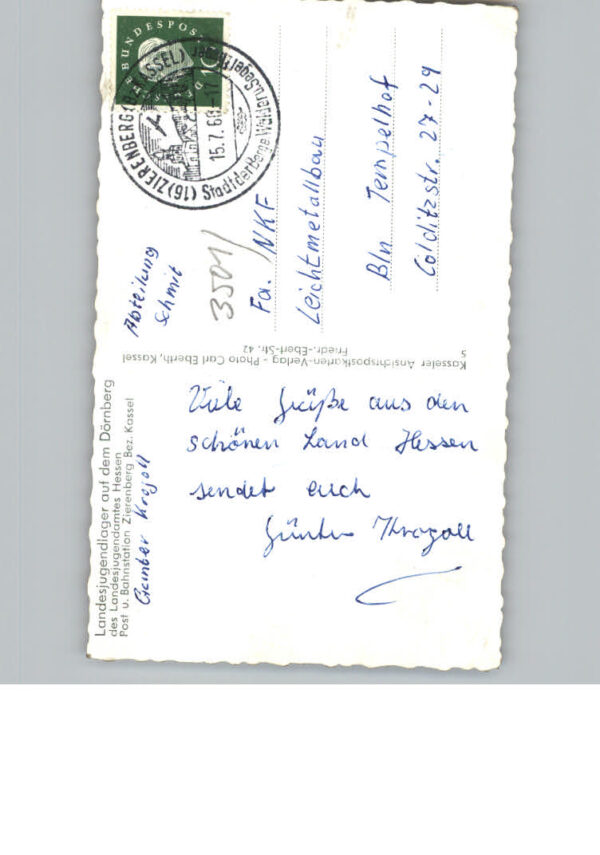 Landesjugendlager auf dem Dörnberg
des Landesjugendamtes Hessen
Post u. Bahnstation Zierenberg Bez. Kassel
Viele Grüße aus den
schönen Land Hessen
sendet euch
Günter
Kasseler Ansichtspostkarten-Verlag - Photo Carl Eberth, Kassel
Friedr.-Ebert-Str. 42
5
DEUTSCHE BUNDESPOST
10
(16) ZIERENBERG (BZ KASSEL)
15.7.60.-17
Stadt der Berge, Wälder u. Segelflieger
Abteilung
Schmit
3501/
Fa. NKF
Leichtmetallbau
Bln Tempelhof
Colditzstr. 27-29